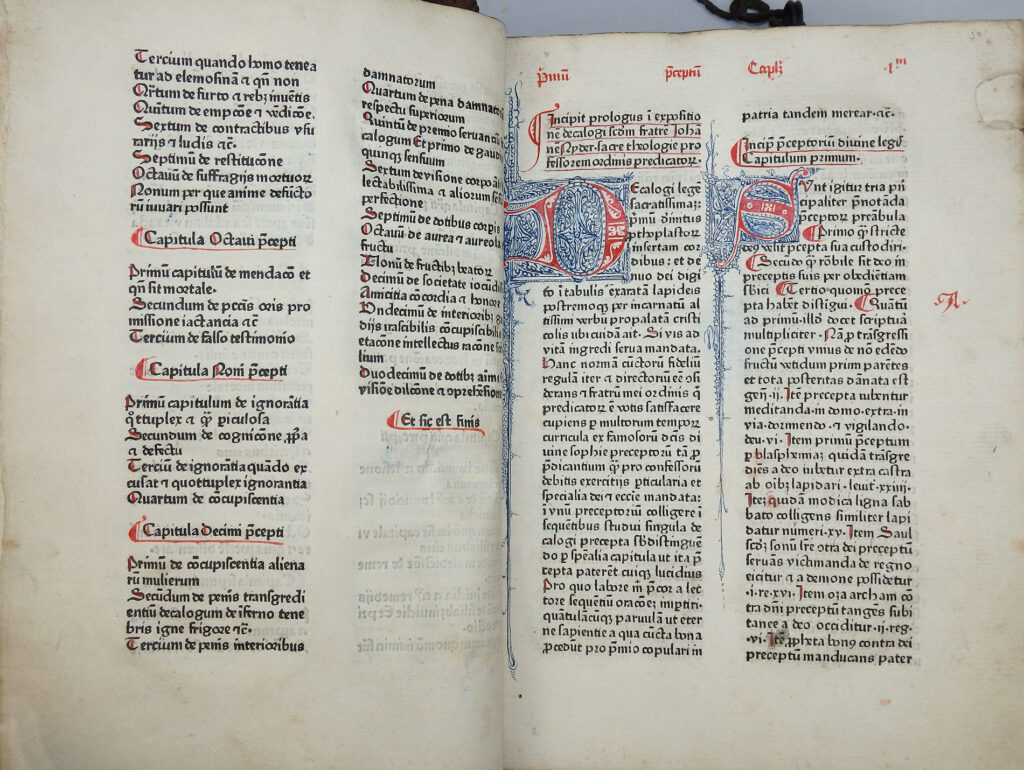 Tercium quando homo tenea
tur ad elemosinā ⁊ qn̄ non
Qr̄tum de furto ⁊ rebꝫ inuētis
Quītum de empcōe ⁊ vēdicōe.
Sextum de contractibus vſu
rarijs ⁊ ludis ⁊c̄.
Septimū de reſtitucōne
Octauū de ſuffragijs mortuoꝝ
Nonum per que anime defūcto
rū iuuari poſſunt
Capitula Octaui p̄cepti
Primū capitulū de mendacō et
qn̄ ſit mortale.
Secundum de pctīs oris pro
miſſione iactancia ⁊c̄
Tercium de falſo teſtimonio
Capitula Noni p̄cepti
Primū capitulum de ignorātia
qͦtuplex ⁊ qͣ piculosa
Secundum de cognicōne ꝓpͥa
⁊ defectu
Terciū de ignorātia quādo ex
cuſat ⁊ quotuplex ignorantia
Quartum de cōcupiſcentia
Capitula Decimi p̄cepti
Primū de cōcupiſcentia aliena
rū mulierum
Secūdum de penis transgredi
entiū decalogum de īferno tene
bris igne frigore ⁊c̄.
Tercium de penis interioribus
damnatorum
Quartum de pena damnatoꝝ
reſpectu ſuperiorum
Quintū de premio ſeruan tiū
calogum Et primo de gaud
quinqꝫ ſenſuum
Sextum de viſione corpoāli
lectabiliſſima ⁊ aliorum ſen
perfectione
Septimū de dotibus corpis
Octauū de aurea ⁊ aureola
fructu
Nonū de fructibꝫ beatoꝝ
Decimū de ſocietate iocūdi
Amicitia cōcordia ⁊ honore
Vndecimū de interioribꝫ g
dijs iraſcibilis cōcupiſcibilis
etacōne intellectus racōne
lium
Duodecimū de dotibꝫ aīme
viſiōe dilcōne ⁊ oprehēſione
Et ſic eſt finis
Pr̄imū p̄ceptū Caplꝫ .Iᵐ
Incipit prologus ī expoſitio
nē decalogi ſcdm̄ fratrē Johā
nē Nyder. ſacre theologie pro
feſſorem ordinis predicatoꝝ.
DEcalogi legē
ſacratiſſimaꝫ
pͥmū diuitus
ptoplaſtoꝝ
inſertam cor
dibus: et de
nuo dei digi
to ī tabulis exaratā lapideis
poſtremoqꝫ per incarnatū al
tiſſimi verbū propalatā criſti
colis ubi cuidā ait. Si vis ad
vitā ingredi ſerua mandata.
Hanc normā cūctorū fideliū
regulā iter ⁊ directoriū eē oſi
derans ⁊ fratrū mei ordinis qͥ
predicatoꝝ ē votis ſatiſfacere
cupiens p̱ multorum tempoꝝ
curricula ex famoſorū dcīs di
uine ſophie preceptorū tā p̱
p̄dicantium qͣ pro confeſſorū
debitis exercitijs p̱ticularia et
ſpecialia dei ⁊ eccīe mandata:
ī vnū preceptoriū colligere ī
ſequētibus ſtudui ſingula de
calogi precepta ſbdiſtinguē
do p̱ ſpēalia capitula ut ita p̄
cepta paterēt cuiqꝫ lucidius
Pro quo labore in p̄coꝝ a lec
tore ſequentiū oracōeꝫ mipͥtiri.
quātulācūqꝫ paruulā ut eter
ne ſapientie a qua cūcta bona
ꝓcedūt pro p̄mio copulari in
patria tandem merear. ⁊c̄.
Incip p̄ceptorium diuine legꝭ
Capitulum primum.
PRimi igitur tria pͥn
cipaliter p̄notāda
p̄ceptoꝝ preābula
Primo qͣ ſtricte
deꝰ velit p̄cepta ſua cuſto diri.
Secūdo qͣ rōbile ſit deo in
preceptis ſuis per obedientiam
ſbici. Tertio quomō prece
pta habēt diſtigui. Quātū
ad primū. illo docet ſcripturā
multipliciter. Nā p̱ trāſgreſſi
onē p̄cepti vnius de nō edēdo
fructū vetidum prim parētes
et tota poſteritas dānata eſt
geñ.ij. Itē precepta iubentur
meditanda in domo. extra. in
via. dormendo. ⁊ vigilando.
deu.vi. Item primū p̄ceptum
p̱ blaſphemiaꝫ quidā trāſgre
diēs a deo iubetur extra caſtra
ab oībꝫ lapidari. leuit̄.xxiiij.
Iteꝫ quidā modica ligna ſab
bato colligens ſimiliter lapi
datur numeri.xv. Item Saul
ſolū ſn̄e oꝛa dei preceptū
ſeruās victimanda de regno
eicitur ⁊ a demone poſſidetur
.i.re.xvi. Item oza arch am cō
tra dn̄i preceptū tangēs ſubi
tanee a deo occiditur .ij.reg.
.vi. Itē ꝓpheta bonꝰ contra dei
preceptū manducans pater
A.